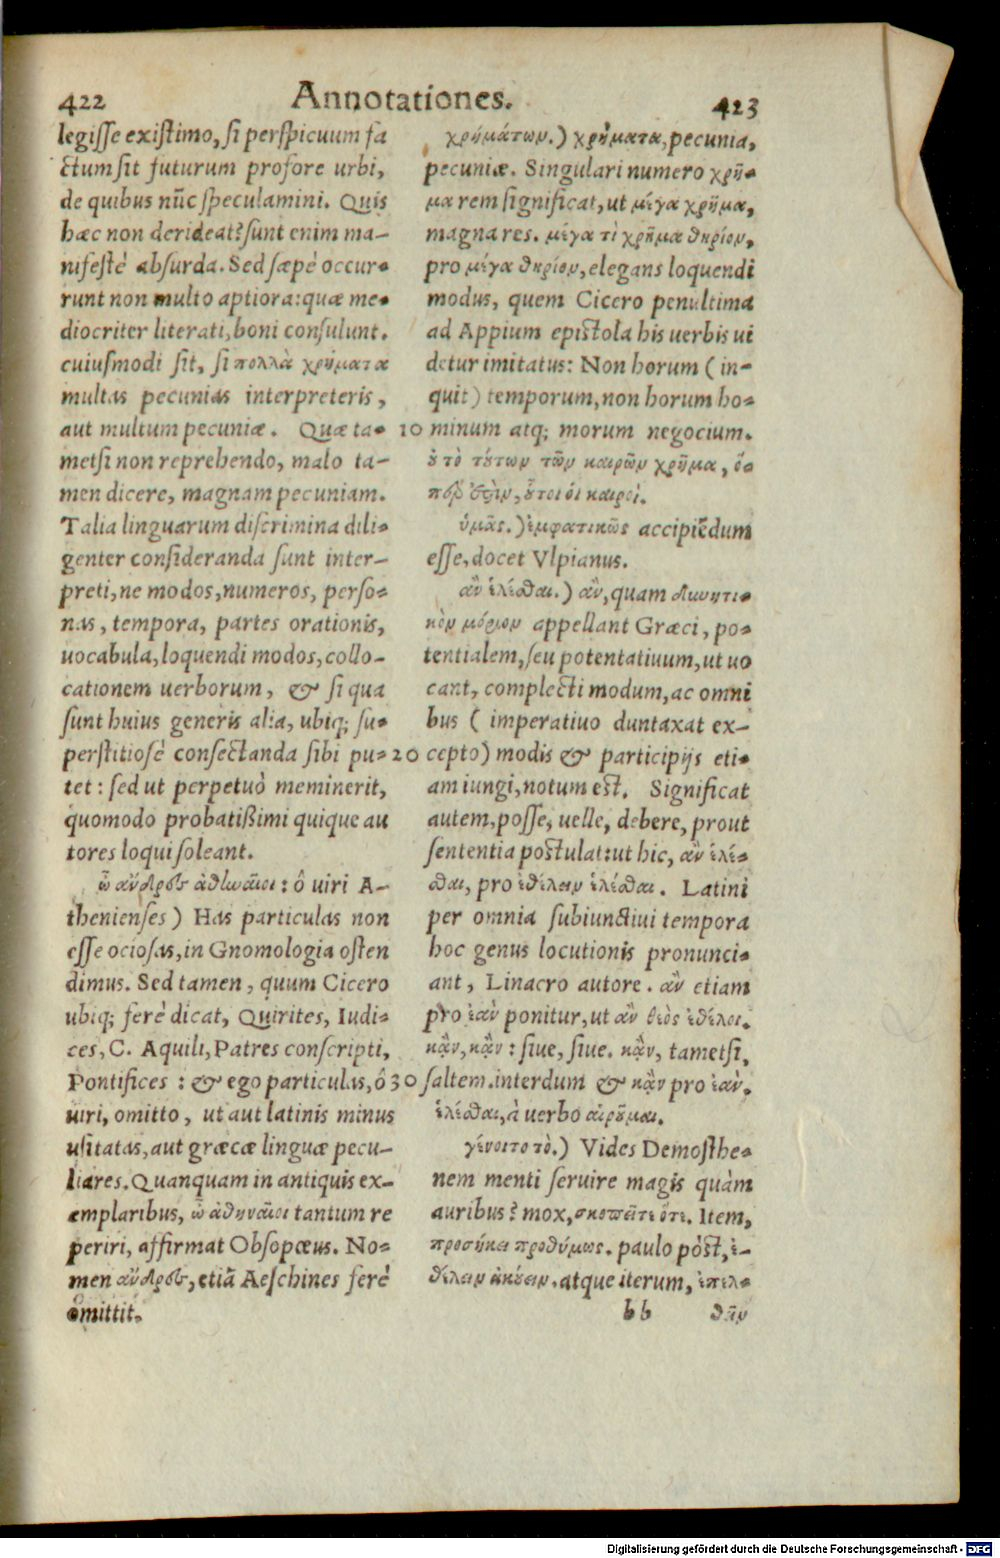 422 Annotationes. 423
legisse existimo, si perspicuum fa
ctum sit futurum profore urbi,
de quibus nūc speculamini. Quis
hæc non derideat? sunt enim ma-
nifestè absurda. Sed sæpè occur-
runt non multo aptiora: quæ me-
diocriter literati, boni consulunt.
cuiusmodi sit, si πολλὰ χρήματα
multas pecunias interpreteris,
aut multum pecuniæ. Quæ ta-
metsi non reprehendo, malo ta-
men dicere, magnam pecuniam.
Talia linguarum discrimina dili-
genter consideranda sunt inter-
preti, ne modos, numeros, perso-
nas, tempora, partes orationis,
uocabula, loquendi modos, collo-
cationem uerborum, & si qua
sunt huius generis alia, ubiq; su-
perstitiosè consectanda sibi pu-
tet: sed ut perpetuò meminerit,
quomodo probatißimi quique au
tores loqui soleant.
ὦ ἄνδρες ἀθηναῖοι: ô uiri A-
thenienses) Has particulas non
esse ociosas, in Gnomologia osten
dimus. Sed tamen, quum Cicero
ubiq; ferè dicat, Quirites, Iudi-
ces, C. Aquili, Patres conscripti,
Pontifices: & ego particulas, ô
uiri, omitto, ut aut latinis minus
usitatas, aut græcæ linguæ pecu-
liares. Quanquam in antiquis ex-
emplaribus, ὦ ἀθηναῖοι tantum re
periri, affirmat Obsopœus. No-
men ἄνδρες, etiā Aeschines ferè
omittit.
χρημάτων.) χρήματα, pecunia,
pecuniæ. Singulari numero χρῆ-
μα rem significat, ut μέγα χρῆμα,
magna res. μέγα τι χρῆμα θηρίου,
pro μέγα θηρίου, elegans loquendi
modus, quem Cicero penultima
ad Appium epistola his uerbis ui
detur imitatus: Non horum (in-
quit) temporum, non horum ho-
10 minum atq; morum negocium.
ὐ τὸ τύτων τῶν καιρῶν χρῆμα, ὅ-
περ ἐστὶν, ὗτοι οἱ καιροί.
ὑμᾶς.) ἐμφατικῶς accipiēdum
esse, docet Vlpianus.
ἂν ἑλέσθαι.) ἂν, quam δυνητι-
κὸν μόριον appellant Græci, po-
tentialem, seu potentatiuum, ut uo
cant, complecti modum, ac omni
bus (imperatiuo duntaxat ex-
20 cepto) modis & participijs eti-
am iungi, notum est. Significat
autem, posse, uelle, debere, prout
sententia postulat: ut hic, ἂν ἑλέ-
σθαι, pro ἐθέλειν ἑλέσθαι. Latini
per omnia subiunctiui tempora
hoc genus locutionis pronunci-
ant, Linacro autore. ἂν etiam
pro ἐὰν ponitur, ut ἂν θεὸς ἐθέλοι.
κἂν, κἂν: siue, siue. κἂν, tametsi,
30 saltem. interdum & κἂν pro ἐὰν.
ἑλέσθαι, à uerbo αἱρῦμαι.
γένοιτο τὸ.) Vides Demosthe-
nem menti seruire magis quàm
auribus? mox, σκοπεῖτε ὅτι. Item,
προσήκει προθύμως. paulo pòst, ἐ-
θέλειν ἀκύειν. atque iterum, ἐπελ-
bb θεῖν
Digitalisierung gefördert durch die Deutsche Forschungsgemeinschaft - DFG